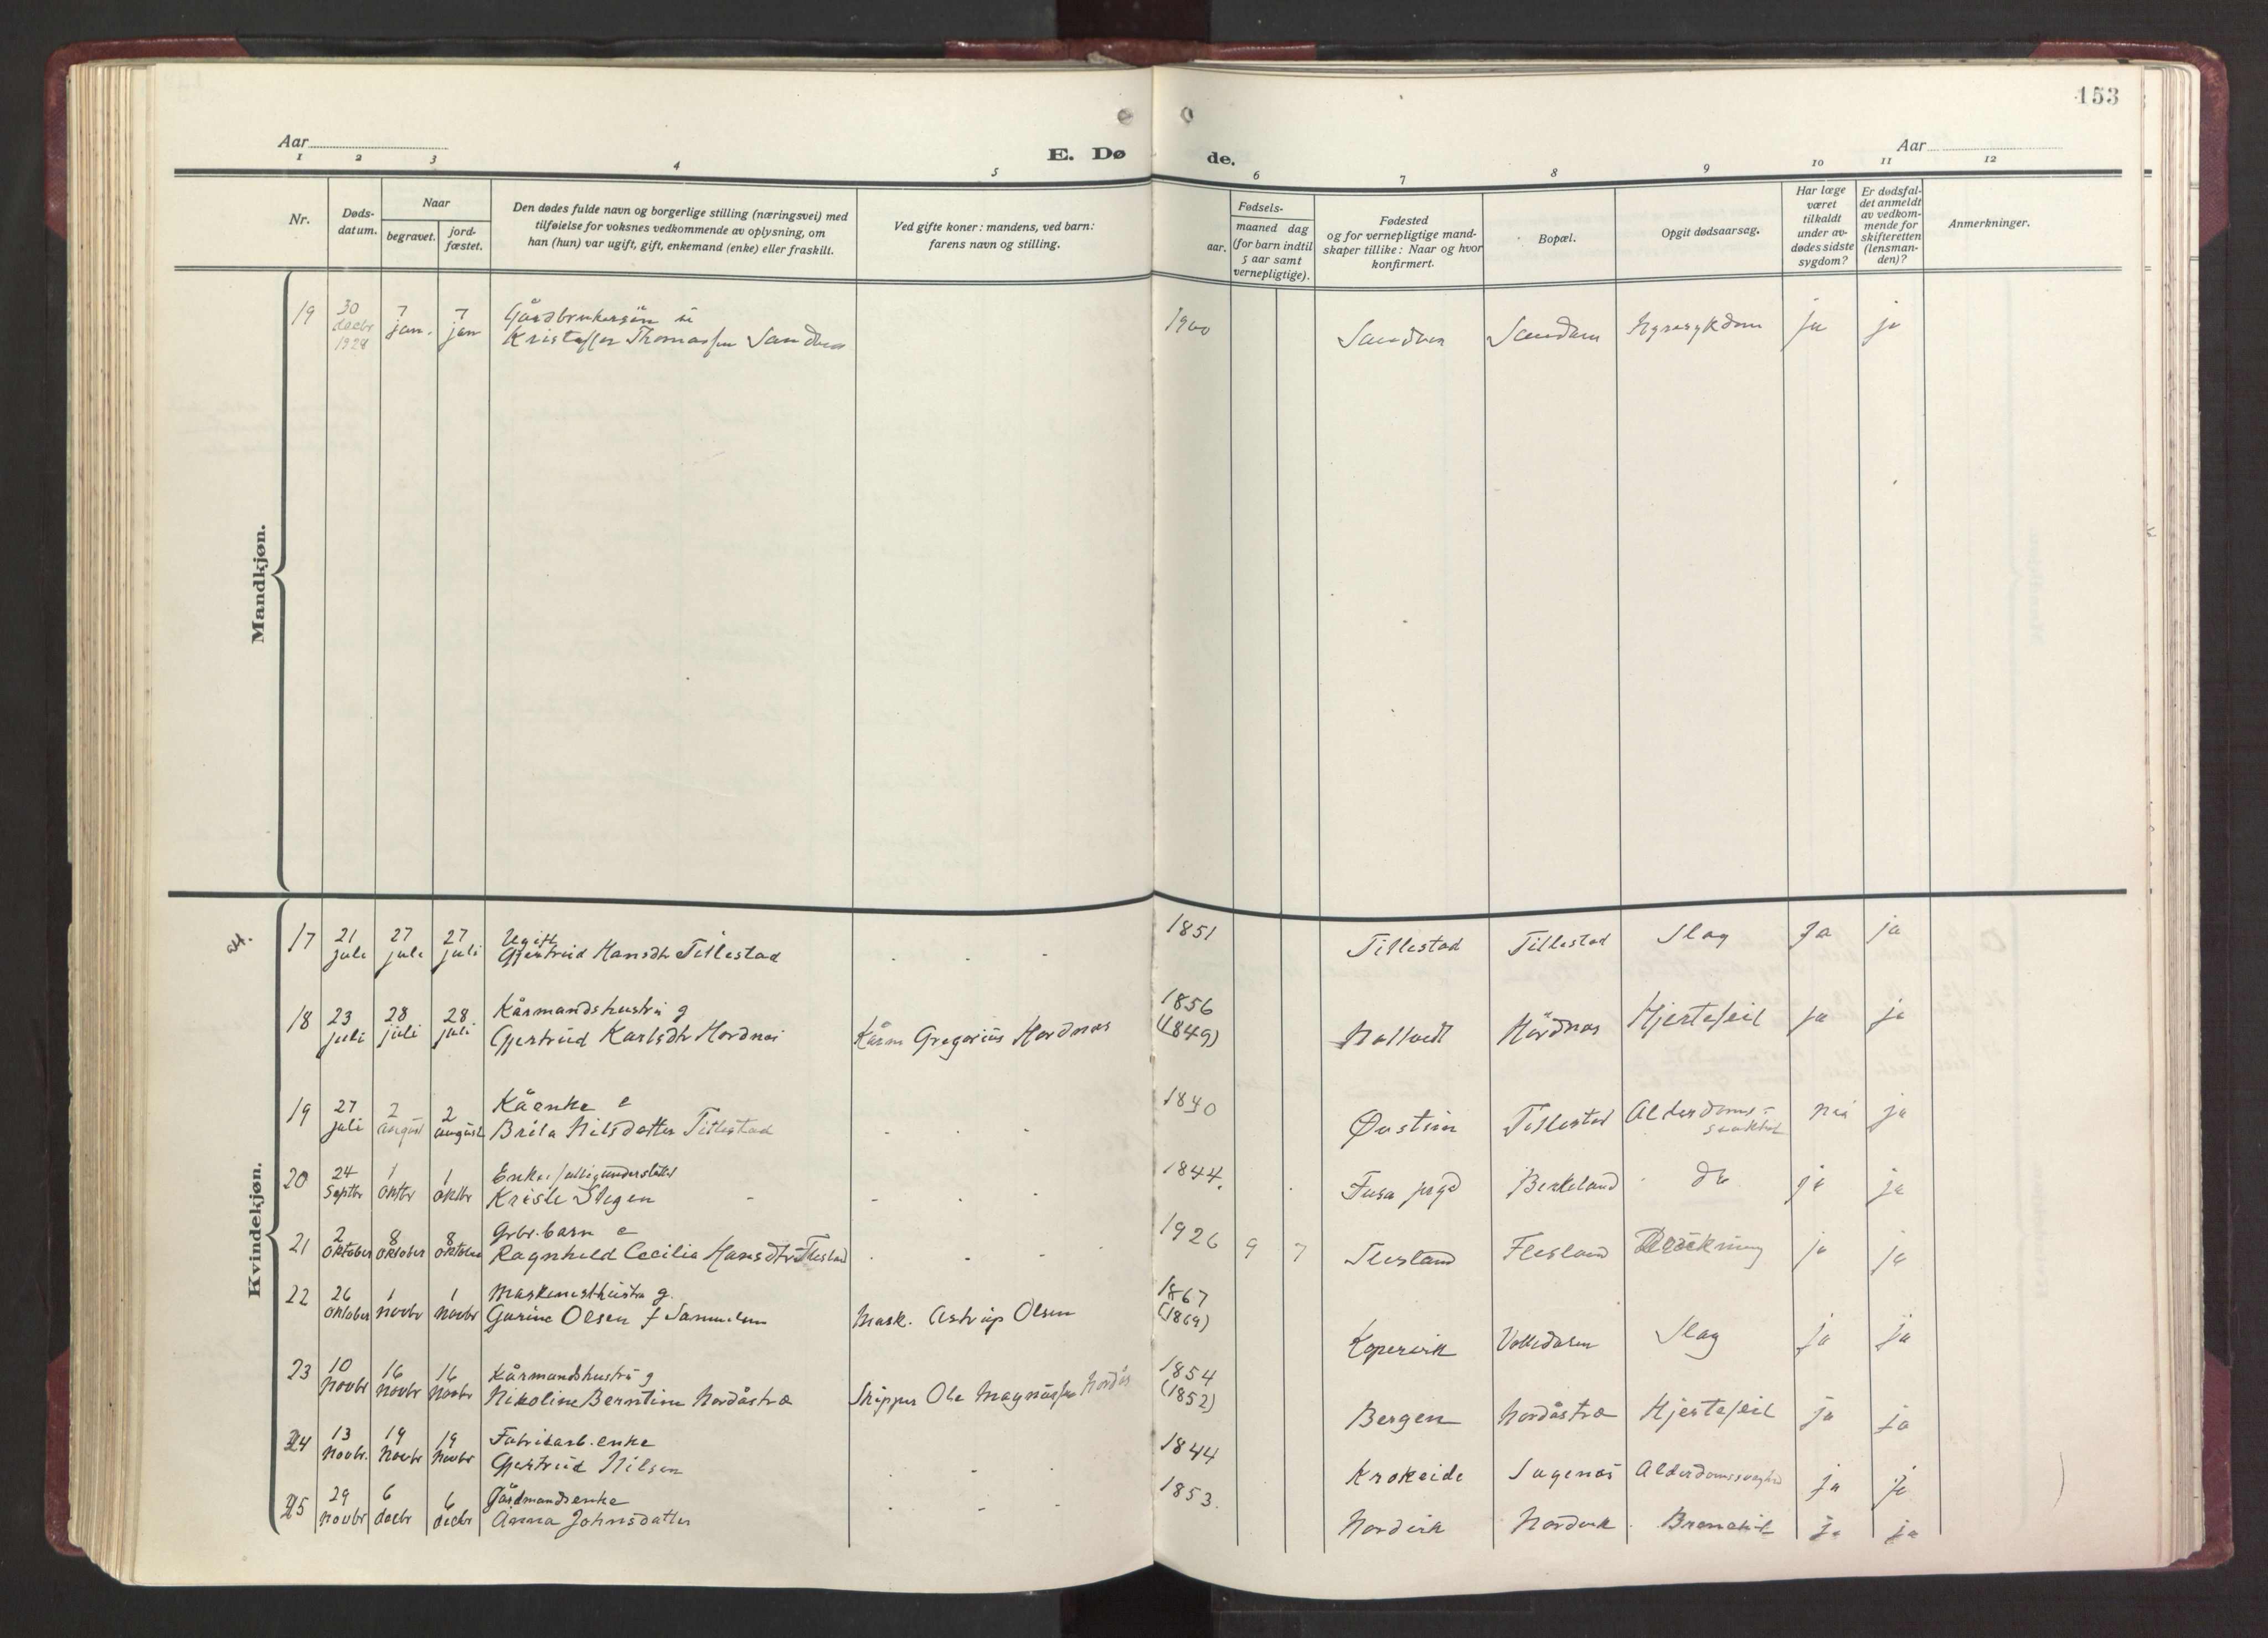 153
Aar
E. Dø de.
Aar
1 2 3 4 5 6 7 8 9 10 11 12
Nr.
Døds-
datum.
Naar
begravet.
jord-
fæstet.
Den dødes fulde navn og borgerlige stilling (næringsvei) med
tilføielse for voksnes vedkommende av oplysning, om
han (hun) var ugift, gift, enkemand (enke) eller fraskilt.
Ved gifte koner: mandens, ved barn:
farens navn og stilling.
Fødsels-
aar.
maaned dag
(for barn indtil
5 aar samt
vernepligtige).
Fødested
og for vernepligtige mand-
skaper tillike: Naar og hvor
konfirmert.
Bopæl.
Opgit dødsaarsag.
Har læge
været
tilkaldt
under av-
dødes sidste
sygdom?
Er dødsfal-
det anmeldt
av vedkom-
mende for
skifteretten
(lensman-
den)?
Anmerkninger.
Mandkjøn.
19 30 7 7 Gårdbrukersön
decbr jan. jan Kristoffer Thomassen 1900 ja ja
1928
Kvindekjøn.
17 21 27 27 Ugift 1851
juli juli juli Gjertrud Hansdtr Titlestad Titlestad Titlestad Slag Ja ja
18 23 28 28 Kårmandshustru g 1856
juli juli juli Gjertrud Karlsdtr Hordnes Kårm Gregorius Hordnes (1849) Hordnes Hjertefeil ja ja
19 27 2 2 Kåenke e 1840
juli august august Brita Nilsdatter Titlestad Titlestad Alderdoms- nei ja
20 24 1 1 Enke 1844.
Septbr Oktbr Oktbr Kristi Fusa Birkeland do ja ja
21 2 8 8 Grbr. barn e 1926 9 7
Oktober Oktober Oktober Ragnhild Cecilia Hansdtr Flesland Flesland Flesland ja ja
22 26 1 1 Maskinisthustru g. 1867
Oktober Novbr Novbr Gurine Olsen f Mask. Astrup Olsen (1869) Kopervik Slag ja ja
23 10 16 16 Kårmandshustru g 1854
Novbr Novbr Novbr Nikoline Berntine Nordåstræ Skipper Ole Magnussen Nordås (1852) Bergen Nordåstræ Hjertefeil ja ja
24 13 19 19 Fabrikarb. enke 1844
Novbr. Novbr Novbr Gjertrud Nilsen Krokeide Alderdomssvaghed ja ja
25 29 6 6 Gårdmandsenke 1853.
Novbr decbr decbr Anna Johnsdatter Nordvik Nordvik ja ja